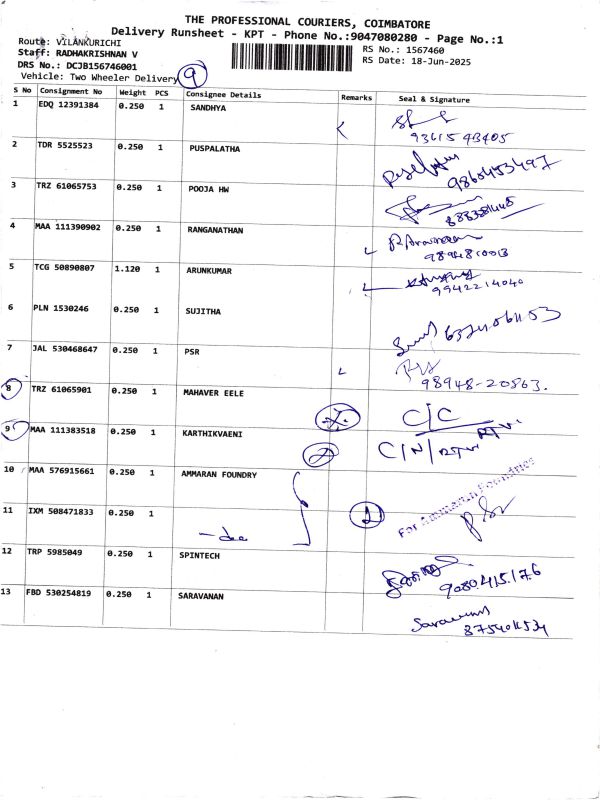 THE PROFESSIONAL COURIERS, COIMBATORE
Delivery Runsheet - KPT - Phone No.:9047080280 - Page No.:1
Route: VILANKURICHI
Staff: RADHAKRISHNAN V
DRS No.: DCJB156746001
Vehicle: Two Wheeler Delivery 9
RS No.: 1567460
RS Date: 18-Jun-2025
S No Consignment No Weight PCS Consignee Details Remarks Seal & Signature
1 EDQ 12391384 0.250 1 SANDHYA
9361543405
2 TDR 5525523 0.250 1 PUSPALATHA
9860453497
3 TRZ 61065753 0.250 1 POOJA HW
4 MAA 111390902 0.250 1 RANGANATHAN
9894810013
5 TCG 50890807 1.120 1 ARUNKUMAR
9942214040
6 PLN 1530246 0.250 1 SUJITHA
7 JAL 530468647 0.250 1 PSR
98948-20863.
8 TRZ 61065901 0.250 1 MAHAVER EELE C/C
9 MAA 111383518 0.250 1 KARTHIKVAENI C/N/
10 MAA 576915661 0.250 1 AMMARAN FOUNDRY
For Ammaran Foundries
11 IXM 508471833 0.250 1
12 TRP 5985049 0.250 1 SPINTECH
9080415176
13 FBD 530254819 0.250 1 SARAVANAN